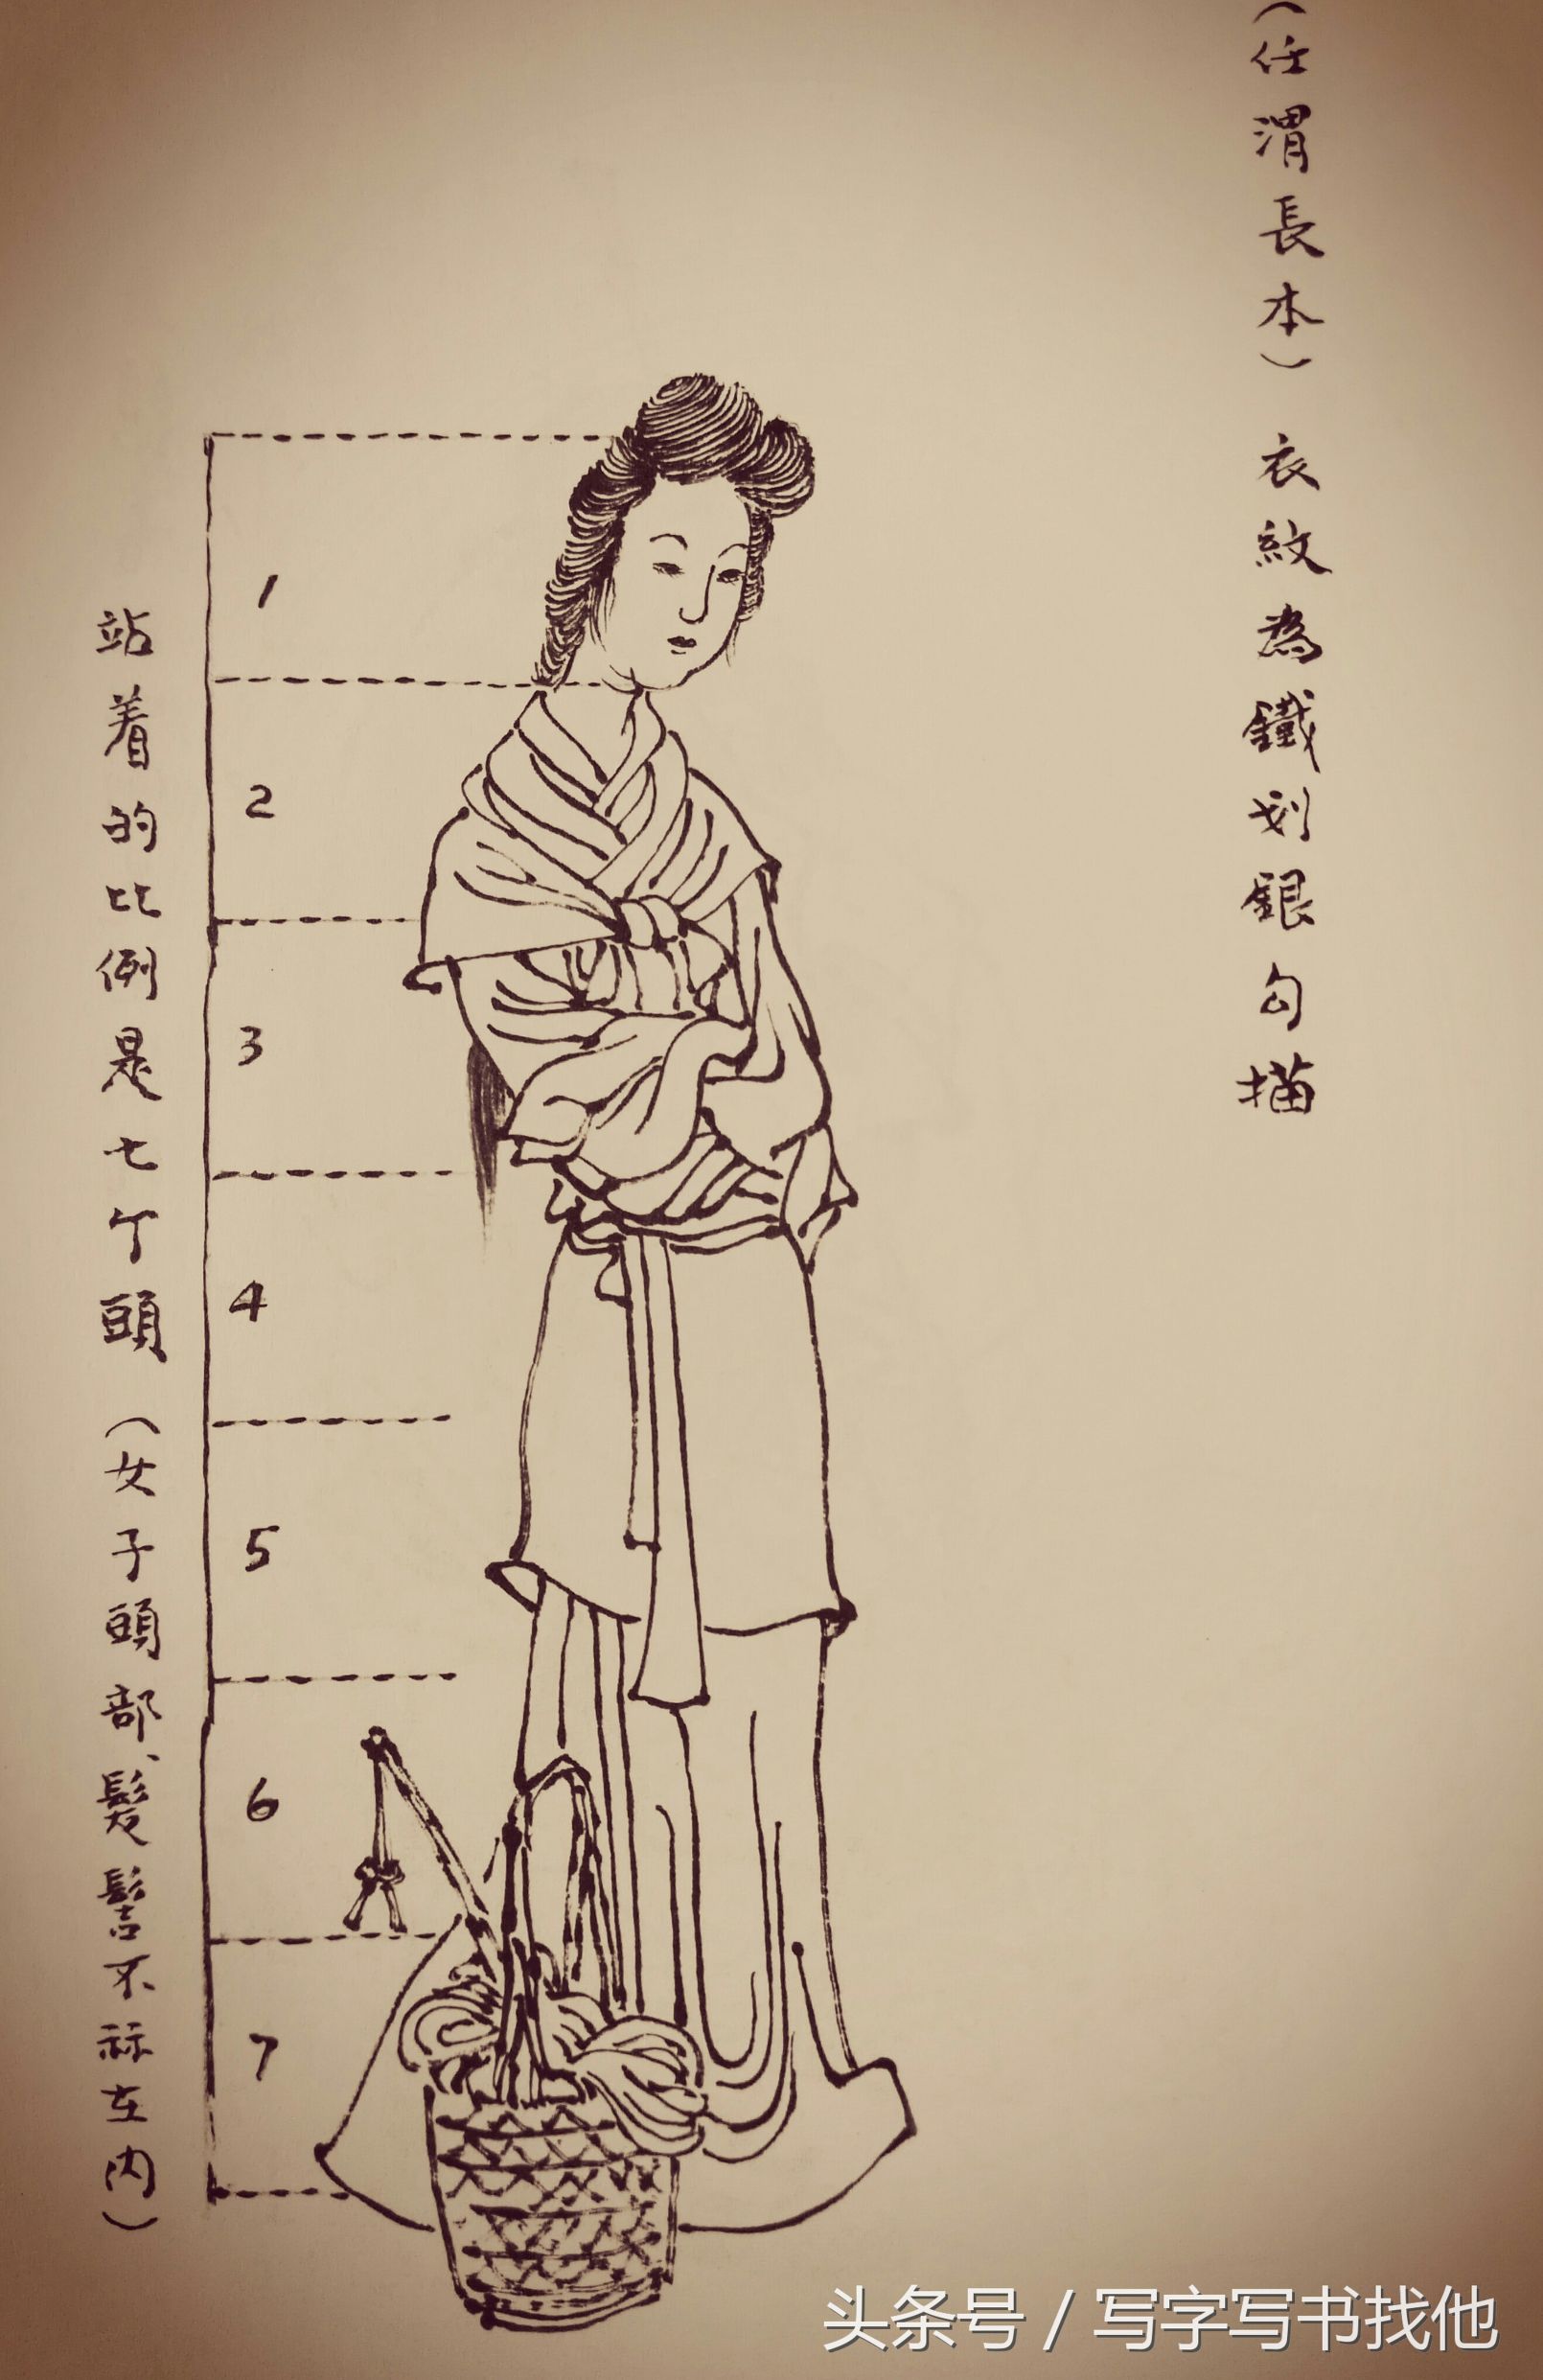 （任渭長本）衣紋為鐵划銀勾描
站着的比例是七个頭（女子頭部、髮髻不祘在内）
1
2
3
4
5
6
7
头条号 / 写字写书找他